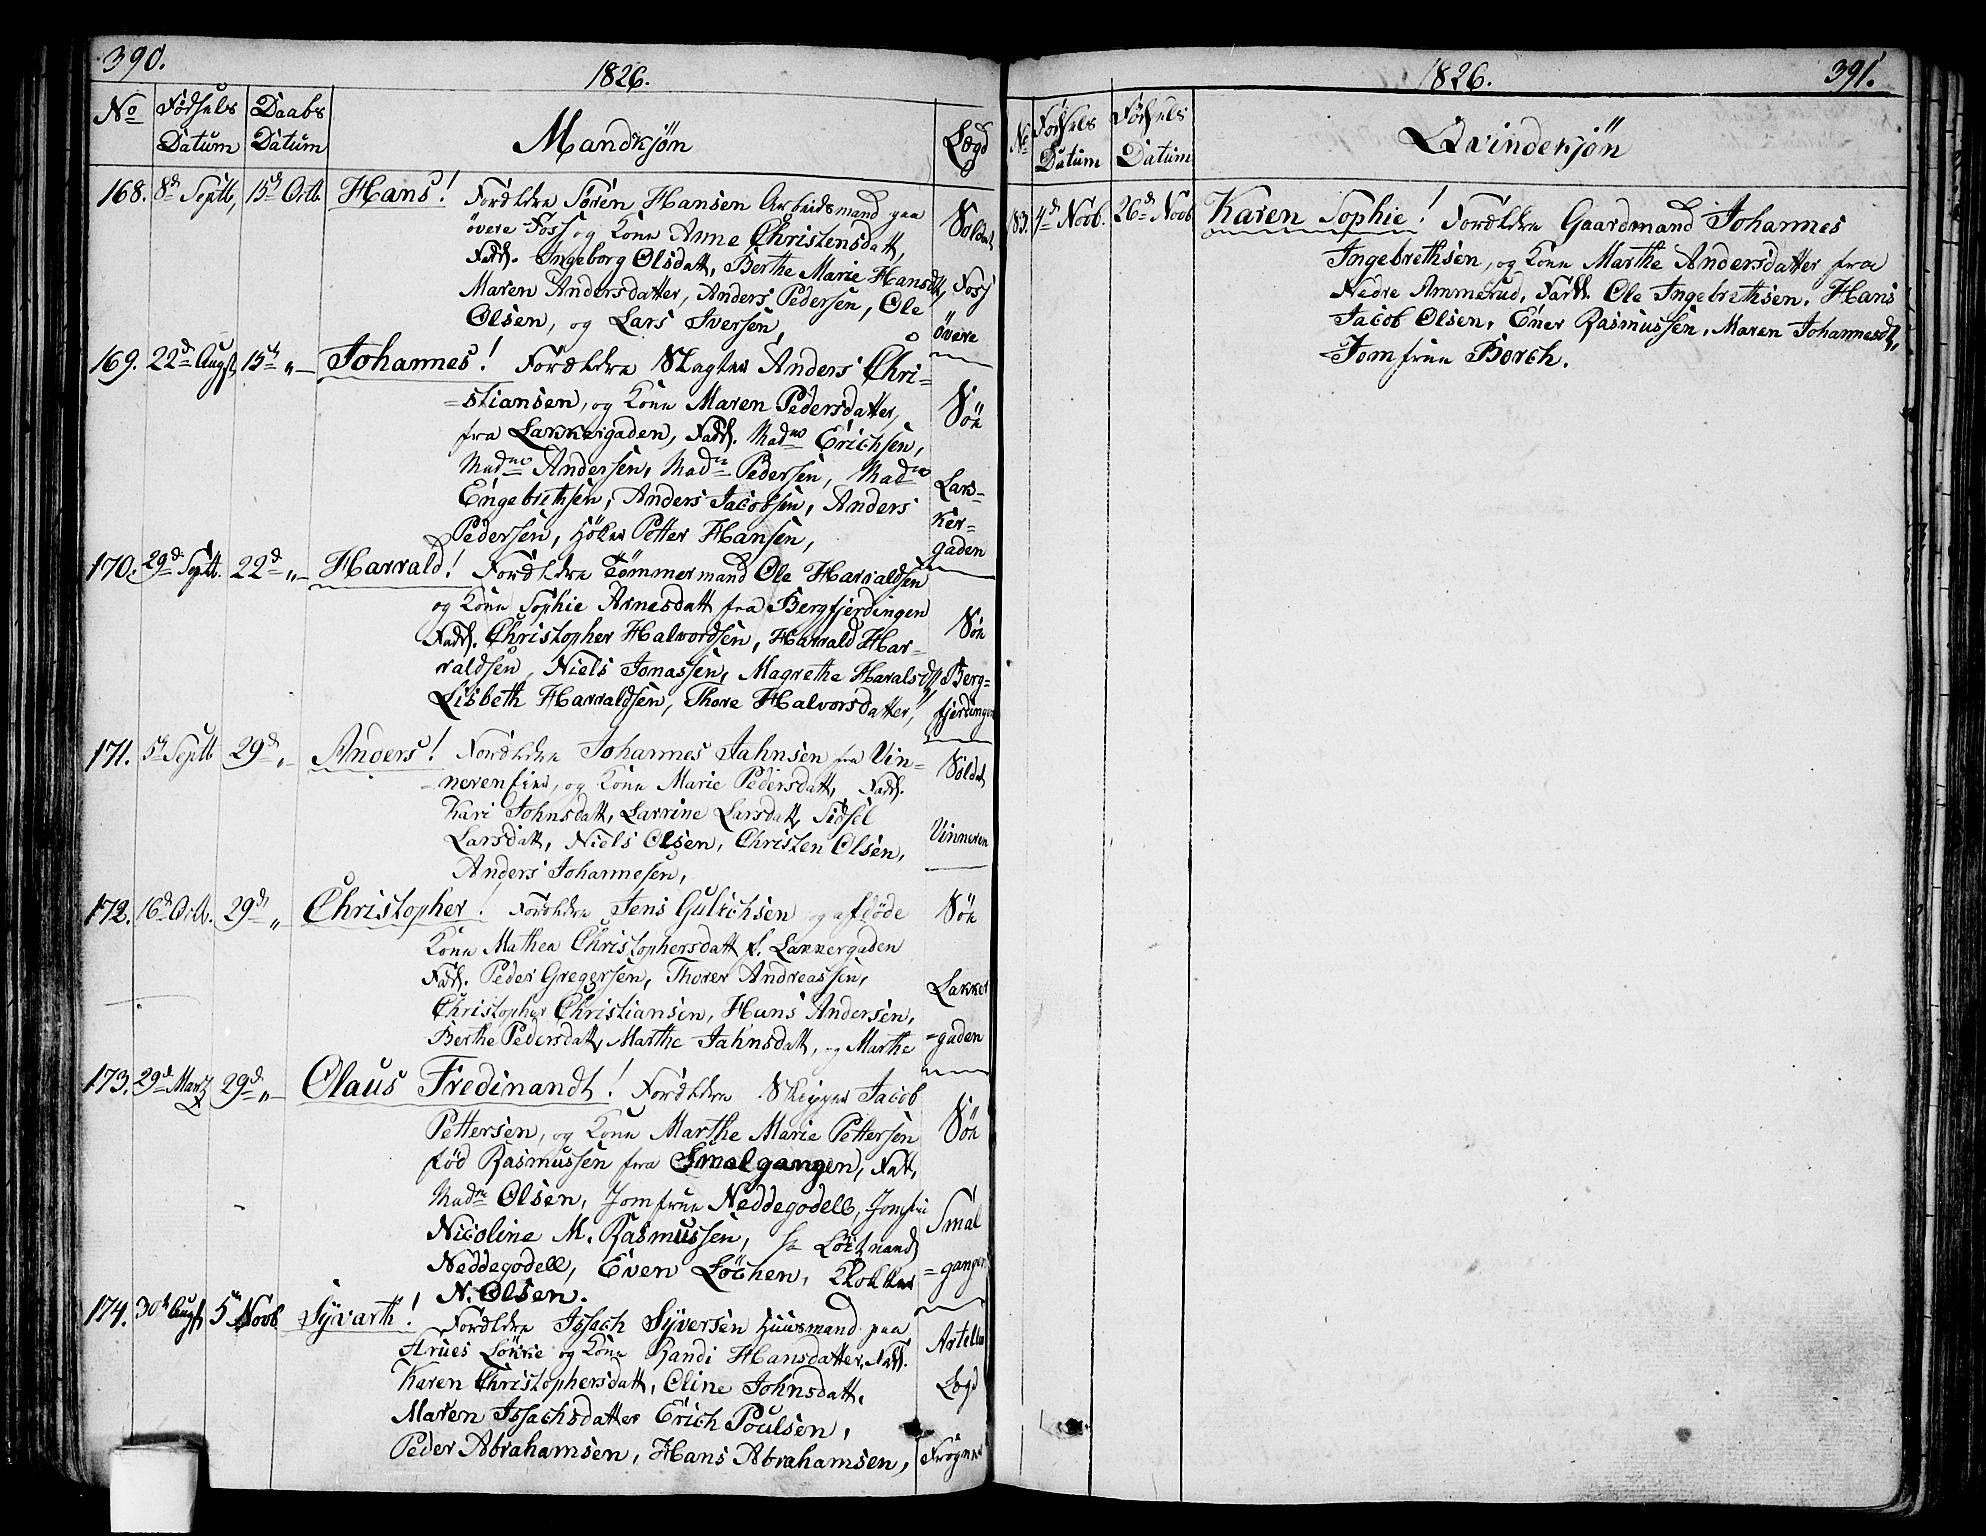 390.
1826.
No Födsels Datum Daabs Datum Mandkjön Lægd
168. 8de Septb, 15de Octb. Hans! Forældre Sören Hansen Arbeidsmand paa
övere Foss og Kone Anne Christensdatt,
Fadd. Ingeborg Olsdatt, Berthe Marie Hansdtt,
Maren Andersdatter, Anders Pedersen, Ole
Olsen, og Lars Iversen,
Soldat
Foss
övere
169. 22de Augst, 15de „ Johannes! Forældre Slagter Anders Chri-
=stiansen, og Kone Maren Pedersdatter,
fra Lakkergaden, Fadd. Madme Erichsen,
Madme Andersen, Madme Pedersen, Madme
Engebrethsen, Anders Jacobsen, Anders
Pedersen, Höker Petter Hansen,
Söe
Lak-
ker-
gaden
170. 29de Septb. 22de „ Harrald! Forældre Tömmermand Ole Harraldsen
og Kone Sophie Arnesdatt fra Bergfjerdingen
Fadd. Christopher Halvordsen, Harrald Har-
raldsen, Niels Jonassen, Magrethe Haralsdtt,
Lisbeth Harraldsen, Thore Halvorsdatter,
Söe
Berg-
fjerdingen
171. 5te Septb 29de „ Anders! Forældre Johannes Jahnsen fra Vin-
neren, og Kone Marie Pedersdatt, Fadd.
Kari Johnsdatt, Larrine Larsdatt, Sidsel
Larsdatt, Niels Olsen, Christen Olsen,
Anders Johannesen,
Soldat
Vinneren
172. 16de Octb. 29de „ Christopher! Forældre Jens Gulichsen og afdöde
Kone Mathea Christophersdatt f. Lakkergaden
Fadd. Peder Gregersen, Thorer Andreassen,
Christopher Christiansen, Hans Andersen,
Berthe Pedersdatt, Marthe Jahnsdatt, og Marthe
Söe
Lakker
=gaden
173. 29de Martz 29de „ Olaus Fredinandt! Forældre Skipper Jacob
Pettersen, og Kone Marthe Marie Pettersen
fød Rasmussen fra Smalgangen, Fadd,
Madme Olsen, Jomfrue Neddegodell, Jomfru
Nicoline M. Rasmussen, Hr Löitnand
Neddegodell, Even Löchen, Klokker
N. Olsen.
Söe
Smal
=gangen
174. 30te Augst 5te Novb Syvarth! Forældre Issach Syversen Huusmand paa
Arues Lökke og Kone Randi Hansdatter, Fadd.
Karen Christophersdatt, Eline Johnsdatt,
Maren Issachsdatter Erich Poulsen,
Peder Abrahamsen, Hans Abrahamsen,
Artellie
Legd
Frogner
1826.
391.
No Fødsels Datum Födsels Datum Qvindekjön
83. 4de Novb. 26de Novb Karen Sophie! Forældre Gaardmand Johannes
Ingebrethsen, og Kone Marthe Andersdatter fra
Nedre Ammerud, Fadd. Ole Ingebrethsen, Hans
Jacob Olsen, Ener Rasmussen, Maren Johannesdt,
Jomfrue Borch.